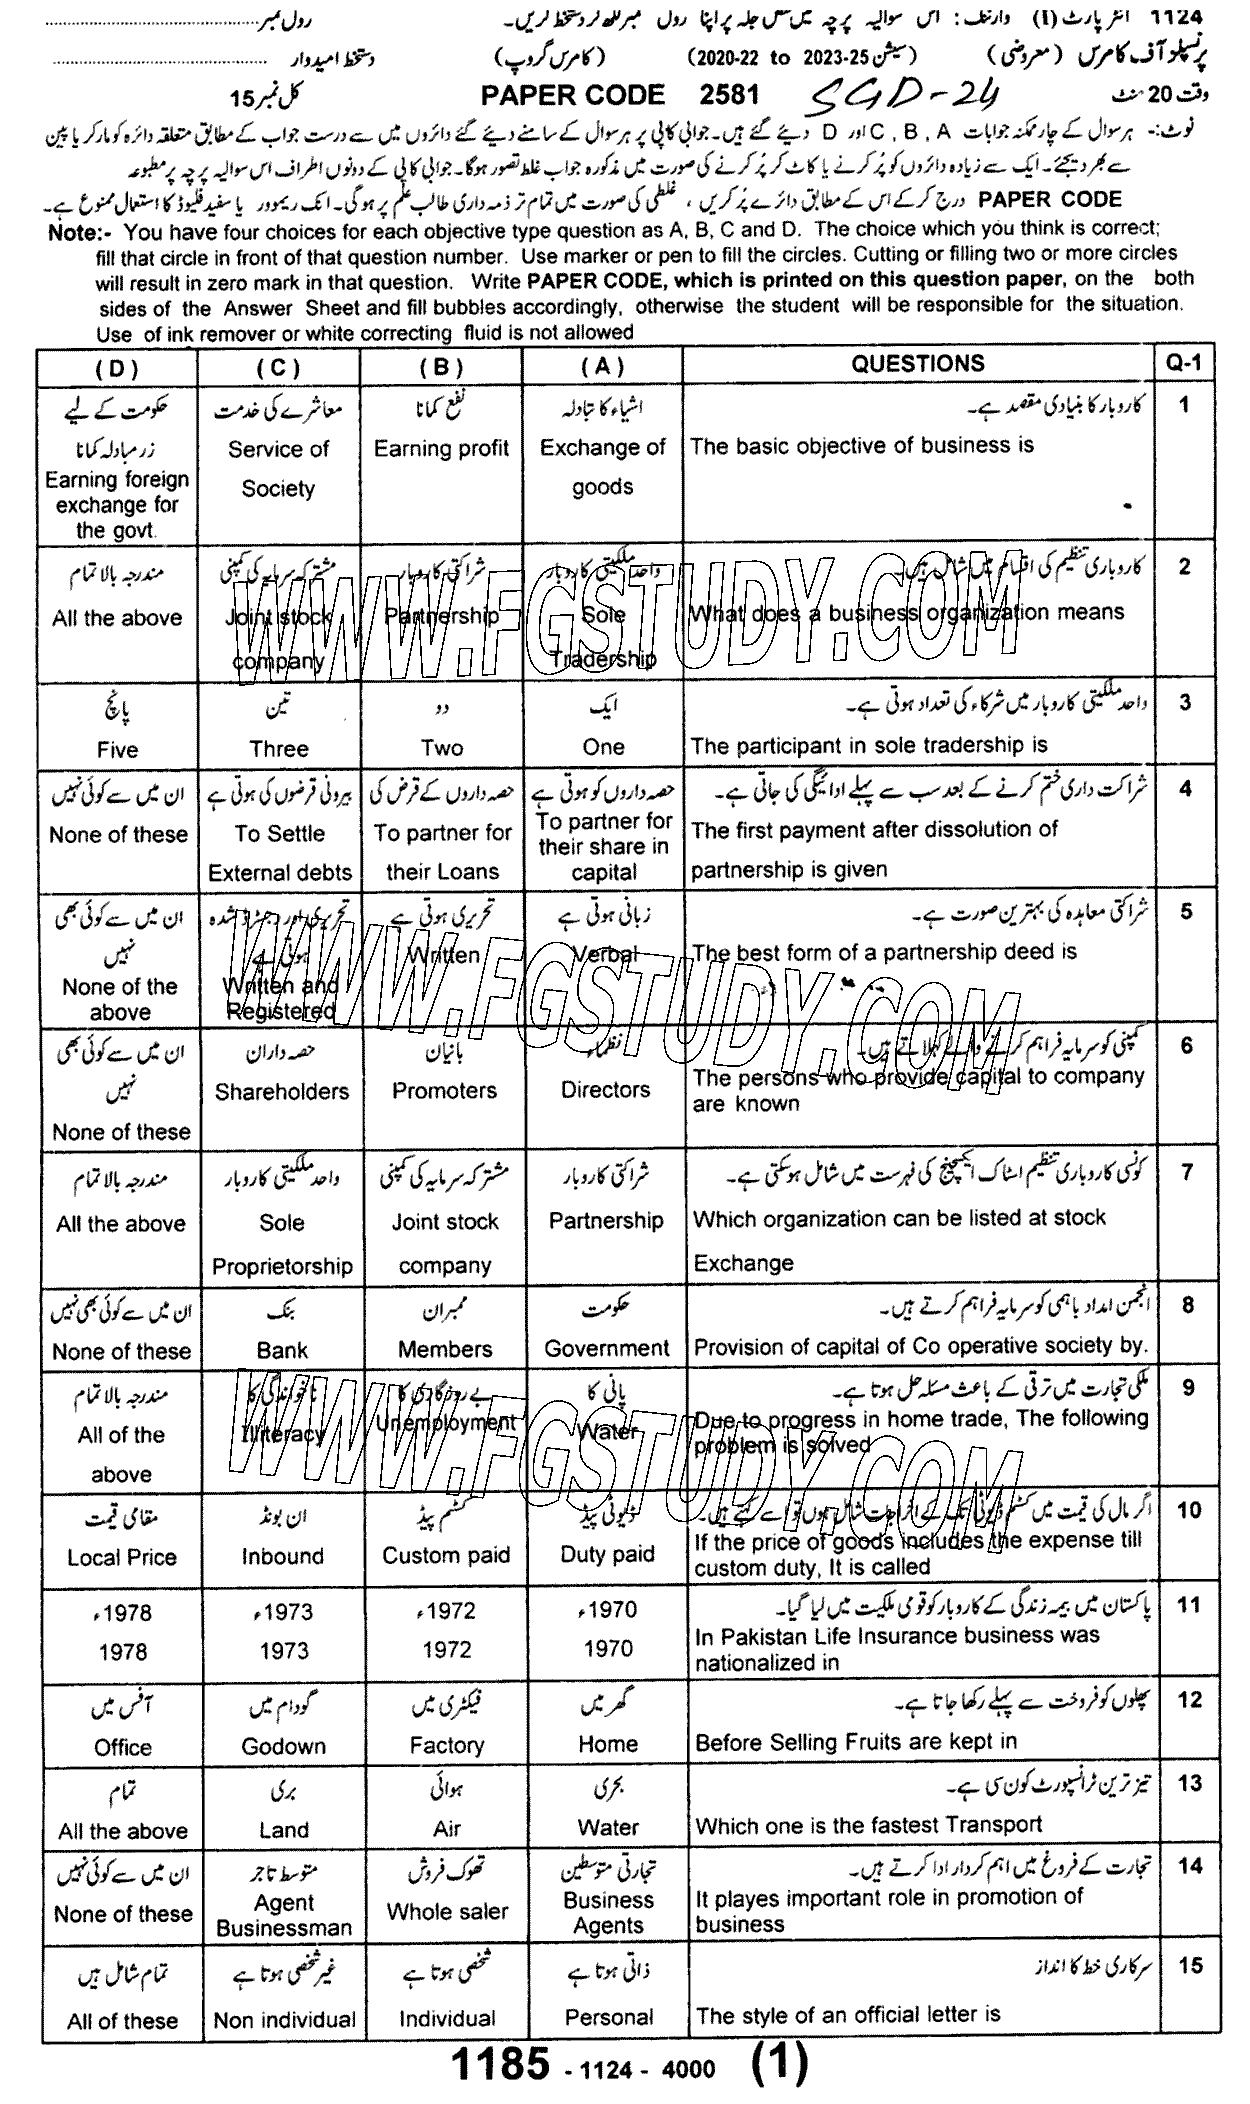 1124 انٹر پارٹ (I) وارننگ: اس سوالیہ پرچہ میں مختص جگہ پر اپنا رول نمبر لکھ کر دستخط کریں۔ رول نمبر
پرنسپلز آف کامرس (معروضی) (سیشن 2020-22 to 2023-25) (کامرس گروپ) دستخط امیدوار
وقت 20 منٹ SGD-24 PAPER CODE 2581 کل نمبر 15
نوٹ:- ہر سوال کے چار ممکنہ جوابات A ، B ، C اور D دیئے گئے ہیں۔ جوابی کاپی پر ہر سوال کے سامنے دیئے گئے دائروں میں سے درست جواب کے مطابق متعلقہ دائرہ کو مارکر یا پین
سے بھر دیجئے۔ ایک سے زیادہ دائروں کو پُر کرنے یا کاٹ کر پُر کرنے کی صورت میں مذکورہ جواب غلط تصور ہوگا۔ جوابی کاپی کے دونوں اطراف اس سوالیہ پرچہ پر مطبوعہ
PAPER CODE درج کر کے اس کے مطابق دائرے پُر کریں، غلطی کی صورت میں تمام تر ذمہ داری طالب علم پر ہوگی۔ انک ریموور یا سفید فلیوڈ کا استعمال ممنوع ہے۔
Note:- You have four choices for each objective type question as A, B, C and D. The choice which you think is correct;
fill that circle in front of that question number. Use marker or pen to fill the circles. Cutting or filling two or more circles
will result in zero mark in that question. Write PAPER CODE, which is printed on this question paper, on the both
sides of the Answer Sheet and fill bubbles accordingly, otherwise the student will be responsible for the situation.
Use of ink remover or white correcting fluid is not allowed
(D) (C) (B) (A) QUESTIONS Q-1
حکومت کے لیے زرمبادلہ کمانا معاشرے کی خدمت نفع کمانا اشیاء کا تبادلہ کاروبار کا بنیادی مقصد ہے۔ 1
Earning foreign exchange for the govt. Service of Society Earning profit Exchange of goods The basic objective of business is
مندرجہ بالا تمام مشترکہ سرمایہ کی کمپنی شراکتی کاروبار واحد ملکیتی کاروبار کاروباری تنظیم کی اقسام میں شامل ہیں۔ 2
All the above Joint stock company Partnership Sole Tradership What does a business organization means
WWW.FGSTUDY.COM
پانچ تین دو ایک واحد ملکیتی کاروبار میں شرکاء کی تعداد ہوتی ہے۔ 3
Five Three Two One The participant in sole tradership is
ان میں سے کوئی نہیں بیرونی قرضوں کی ہوتی ہے حصہ داروں کے قرض کی حصہ داروں کو ہوتی ہے شراکت داری ختم کرنے کے بعد سب سے پہلے ادائیگی کی جاتی ہے۔ 4
None of these To Settle External debts To partner for their Loans To partner for their share in capital The first payment after dissolution of partnership is given
ان میں سے کوئی بھی نہیں تحریری اور رجسٹرڈ شدہ ہوتی ہے تحریری ہوتی ہے زبانی ہوتی ہے شراکتی معاہدہ کی بہترین صورت ہے۔ 5
None of the above Written and Registered Written Verbal The best form of a partnership deed is
WWW.FGSTUDY.COM
ان میں سے کوئی بھی نہیں حصہ داران بانیان نظماء کمپنی کو سرمایہ فراہم کرنے والے کہلاتے ہیں۔ 6
None of these Shareholders Promoters Directors The persons who provide capital to company are known
مندرجہ بالا تمام واحد ملکیتی کاروبار مشترکہ سرمایہ کی کمپنی شراکتی کاروبار کونسی کاروباری تنظیم اسٹاک ایکسچینج کی فہرست میں شامل ہو سکتی ہے۔ 7
All the above Sole Proprietorship Joint stock company Partnership Which organization can be listed at stock Exchange
ان میں سے کوئی بھی نہیں بنک ممبران حکومت انجمن امداد باہمی کو سرمایہ فراہم کرتے ہیں۔ 8
None of these Bank Members Government Provision of capital of Co operative society by.
مندرجہ بالا تمام ناخواندگی کا بے روزگاری کا پانی کا ملکی تجارت میں ترقی کے باعث مسئلہ حل ہوتا ہے۔ 9
All of the above Illiteracy Unemployment Water Due to progress in home trade, The following problem is solved
WWW.FGSTUDY.COM
مقامی قیمت ان بونڈ کسٹم پیڈ ڈیوٹی پیڈ اگر مال کی قیمت میں کسٹم ڈیوٹی تک کے اخراجات شامل ہوں تو اسے کہتے ہیں۔ 10
Local Price Inbound Custom paid Duty paid If the price of goods includes the expense till custom duty, It is called
1978ء 1973ء 1972ء 1970ء پاکستان میں بیمہ زندگی کے کاروبار کو قومی ملکیت میں لیا گیا۔ 11
1978 1973 1972 1970 In Pakistan Life Insurance business was nationalized in
آفس میں گودام میں فیکٹری میں گھر میں پھلوں کو فروخت سے پہلے رکھا جاتا ہے۔ 12
Office Godown Factory Home Before Selling Fruits are kept in
تمام بری ہوائی بحری تیز ترین ٹرانسپورٹ کون سی ہے۔ 13
All the above Land Air Water Which one is the fastest Transport
ان میں سے کوئی نہیں متوسط تاجر تھوک فروش تجارتی متوسطین تجارت کے فروغ میں اہم کردار ادا کرتے ہیں۔ 14
None of these Agent Businessman Whole saler Business Agents It playes important role in promotion of business
تمام شامل ہیں غیر شخصی ہوتا ہے شخصی ہوتا ہے ذاتی ہوتا ہے سرکاری خط کا انداز 15
All of these Non individual Individual Personal The style of an official letter is
1185 - 1124 - 4000 (1)